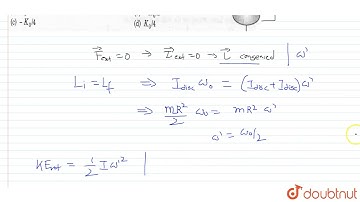 (c) - K₀/4
(d) K₀/4
F⃗ext = 0 → τ⃗ext = 0 → L⃗ conserved | ω'
Li = Lf ⇒ Idisc ω₀ = (Idisc + Idisc) ω'
⇒ mR²/2 ω₀ = mR² ω'
ω' = ω₀/2
KErot = 1/2 I ω'² |
doubtnut